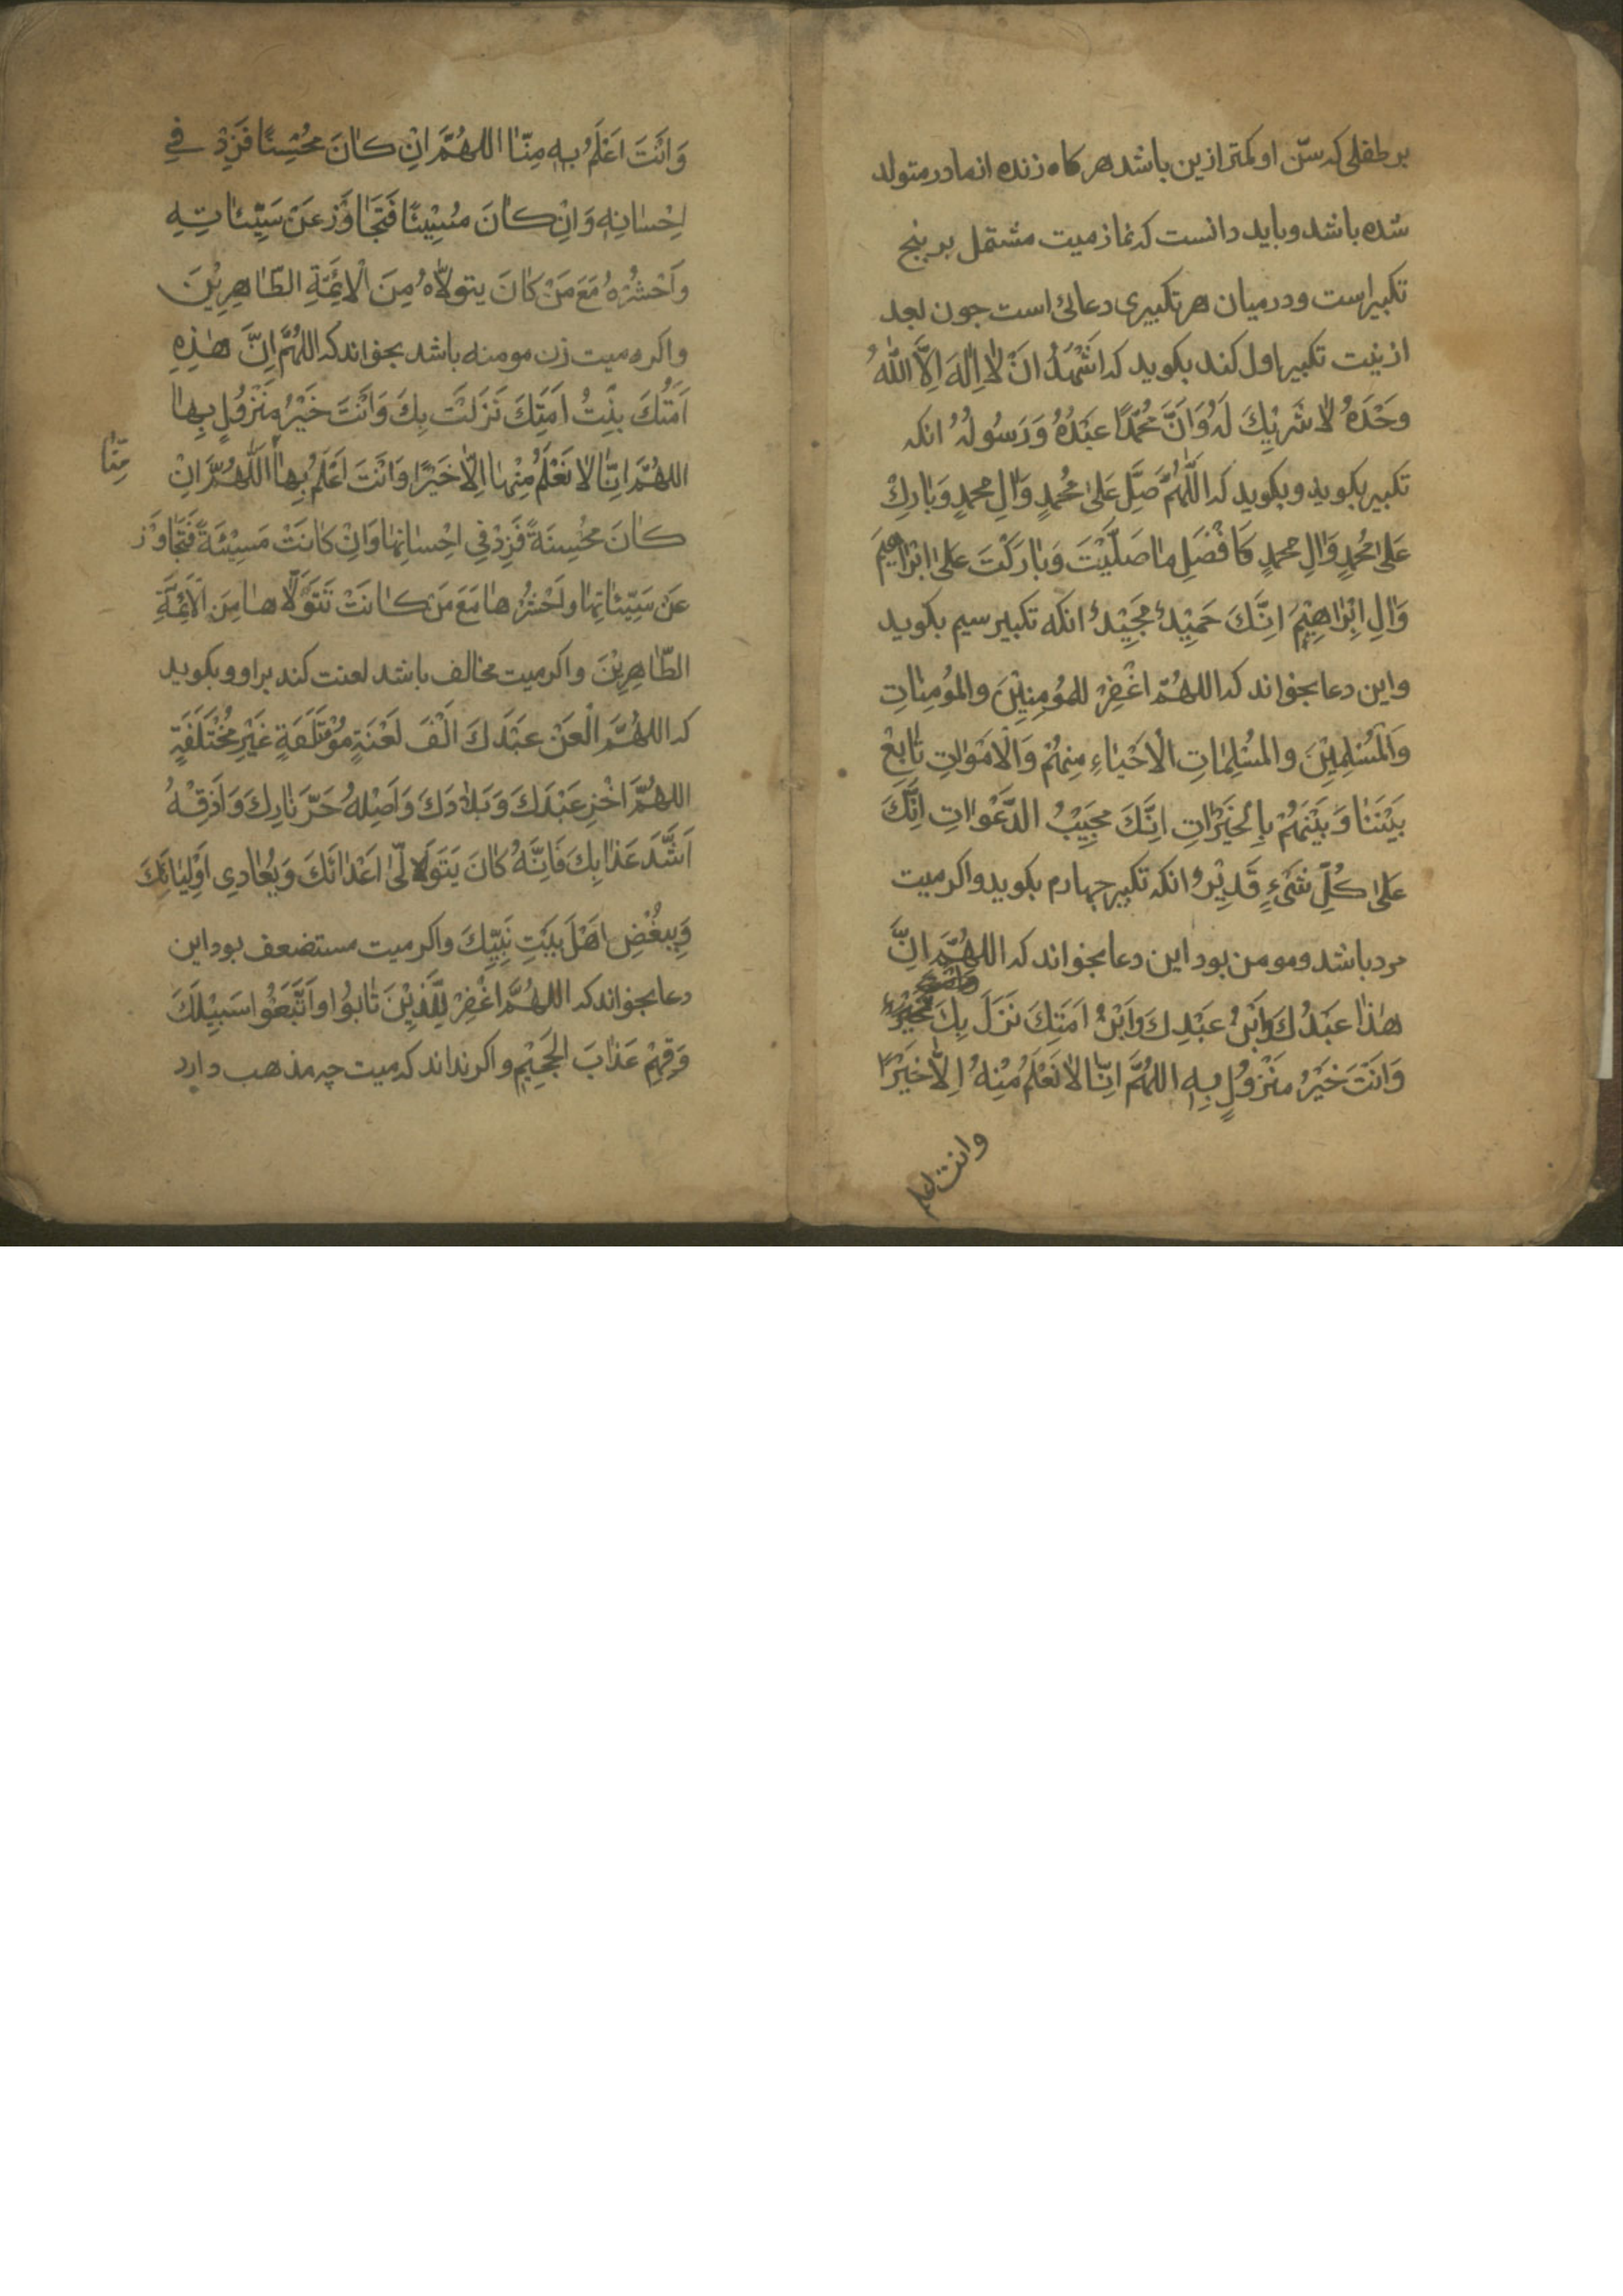 بر طفلی که سّن او کمتر ازین باشد هر کاه زنده از مادر متولد
شده باشد و باید دانست که نماز میت مشتمل بر پنج
تکبیر است و در میان هر تکبیری دعائی است چون بعد
از نیت تکبیر اول کند بکوید که اَشْهَدُ اَنْ لٰا اِلٰهَ اِلَّا اللّٰهُ
وَحْدَهُ لٰا شَرِیْكَ لَهُ وَاَنَّ مُحَمَّدًا عَبْدُهُ وَرَسُولُهُ انکه
تکبیر بکوید و بکوید که اَللّٰهُمَّ صَلِّ عَلیٰ مُحمدٍ وَاٰلِ محمدٍ وَبٰارِكْ
عَلیٰ مُحمدٍ وَاٰلِ محمدٍ کَاَفْضَلِ مٰا صَلَّیْتَ وَبٰارَکْتَ عَلیٰ اِبْرٰاهِیْمَ
وَاٰلِ اِبْرٰاهِیْمَ اِنَّكَ حَمِیْدٌ مَجِیْدٌ انکه تکبیر سیم بکوید
واین دعا بخواند که اللهُمّ اغْفِرْ للمُؤمِنِیْنَ والمُؤمِنٰاتِ
وَالْمُسْلِمِیْنَ والمُسْلِمٰاتِ الْاَحْیٰاءِ مِنهُمْ وَالْاَمْوٰاتِ تٰابِعْ
بَیْنَنٰا وَبَیْنَهُمْ بِالْخَیْرٰاتِ اِنَّكَ مُجِیْبُ الدَّعَوٰاتِ اِنَّكَ
عَلیٰ کُلِّ شَیْءٍ قَدِیْرٌ انکه تکبیر چهارم بکوید و اکر میت
مرد باشد و مومن بود این دعا بخواند که اللهُمَّ اِنَّ
هٰذٰا عَبْدُكَ وَابْنُ عَبْدِكَ وَابْنُ اَمَتِكَ نَزَلَ بِكَ
وَاَنْتَ خَیْرُ مَنْزُوْلٍ بِهِ اللهُمَّ اِنّٰا لٰا نَعْلَمُ مِنْهُ اِلّٰا خَیْرًا
وانت اعلم
وَاَنْتَ اَعْلَمُ بِهِ مِنّٰا اللهُمَّ اِنْ کٰانَ مُحْسِنًا فَزِدْ فِی
اِحْسٰانِهِ وَاِنْ کٰانَ مُسِیْئًا فَتَجٰاوَزْ عَنْ سَیِّئٰاتِهِ
وَاَحْشُرْهُ مَعَ مَنْ کٰانَ یتولّاهُ مِنَ الْاَئِمَّةِ الطّٰاهِرِیْنَ
واکر میت زن مومنه باشد بخواند که اللهُمَّ اِنَّ هٰذِهِ
اَمَتُكَ بِنْتُ اَمَتِكَ نَزَلَتْ بِكَ وَاَنْتَ خَیْرُ مَنْزُوْلٍ بِهٰا
اللهُمَّ اِنّٰا لٰا نَعْلَمُ مِنْهٰا اِلّٰا خَیْرًا وَاَنْتَ اَعْلَمُ بِهٰا اَللّٰهُمَّ اِنْ
مِنّٰا
کٰانَ مُحْسِنَةً فَزِدْ فِی اِحْسٰانِهٰا وَاِنْ کٰانَتْ مَسِیْئَةً فَتَجٰاوَزْ
عَنْ سَیِّئٰاتِهٰا وَاَحْشُرْهٰا مَعَ مَنْ کٰانَتْ تَتَوَلّٰاهٰا مِنَ الْاَئِمَّةِ
الطّٰاهِرِیْنَ واکر میت مخالف باشد لعنت کند بر او و بکوید
که اللهُمَّ الْعَنْ عَبْدَكَ اَلْفَ لَعْنَةٍ مُؤْتَلَفَةٍ غَیْرِ مُخْتَلَفَةٍ
اللهُمَّ اخْزِ عَبْدَكَ وَبِلٰادَكَ وَاَصْلِهُ حَرَّ نٰارِكَ وَاَذِقْهُ
اَشَّدَ عَذٰابِكَ فَاِنَّهُ کٰانَ یَتَوَلّیٰ اَعْدٰائَكَ وَیُعٰادِی اَوْلِیٰائَكَ
وَیبغُضِ اَهْلَ بَیْتِ نَبِیِّكَ واکر میت مستضعف بود این
دعا بخواند که اللهُمَّ اغْفِرْ لِلَّذِیْنَ تٰابُوْا واَتَّبَعَوُا سَبِیْلَكَ
وَقِهِمْ عَذٰابَ الْجَحِیْمِ و اکر نداند که میت چه مذهب دارد